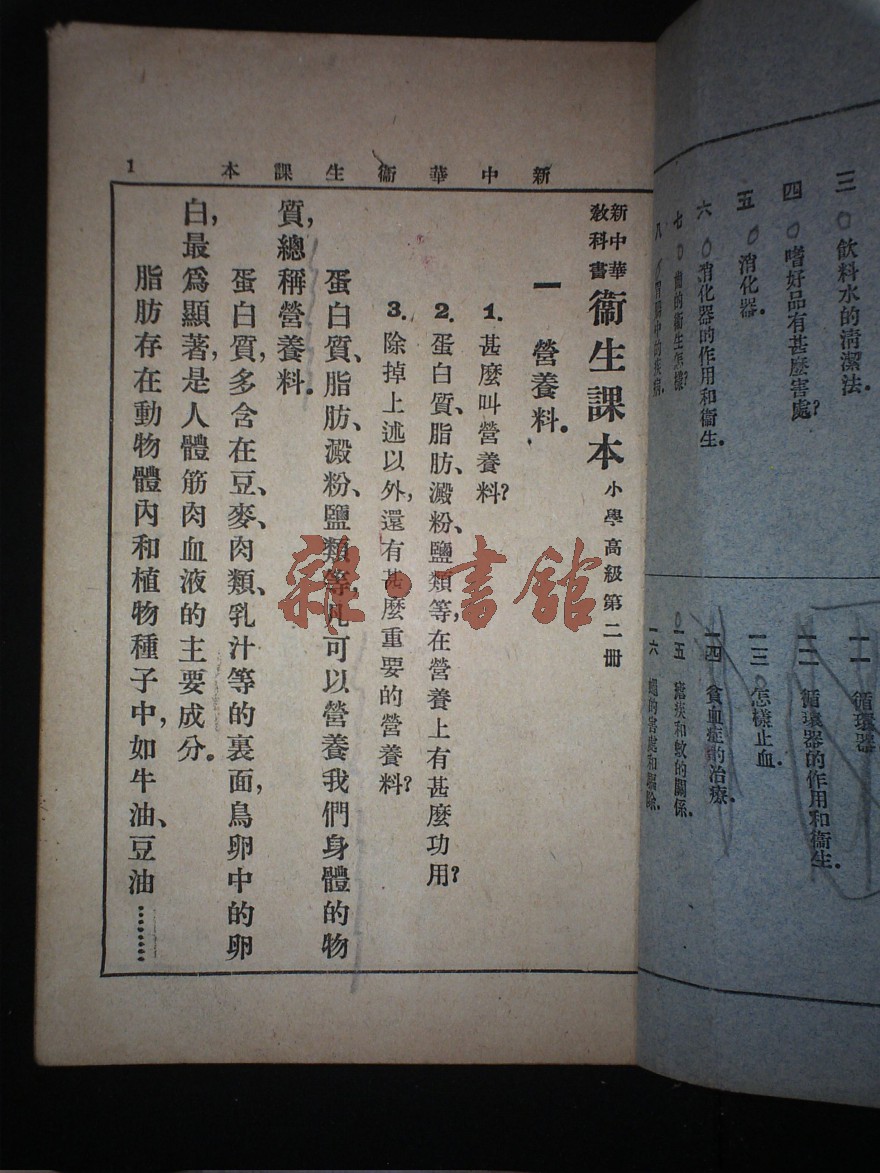 三 飲料水的清潔法.
四 嗜好品有甚麼害處?
五 消化器.
六 消化器的作用和衞生.
七 齒的衞生怎樣?
八
一一 循環器
一二 循環器的作用和衞生.
一三 怎樣止血.
一四 貧血症的治療.
一五 瘧疾和蚊的關係.
一六 蠅的害處和驅除.
新中華衞生課本
1
新中華教科書 衞生課本 小學高級第二册
一 營養料.
1. 甚麼叫營養料?
2. 蛋白質、脂肪、澱粉、鹽類等,在營養上有甚麼功用?
3. 除掉上述以外,還有甚麼重要的營養料?
蛋白質、脂肪、澱粉、鹽類等,凡可以營養我們身體的物
質,總稱營養料.
蛋白質,多含在豆、麥、肉類、乳汁等的裏面,鳥卵中的卵
白,最爲顯著,是人體筋肉血液的主要成分.
脂肪存在動物體內和植物種子中,如牛油、豆油………
雜·書館